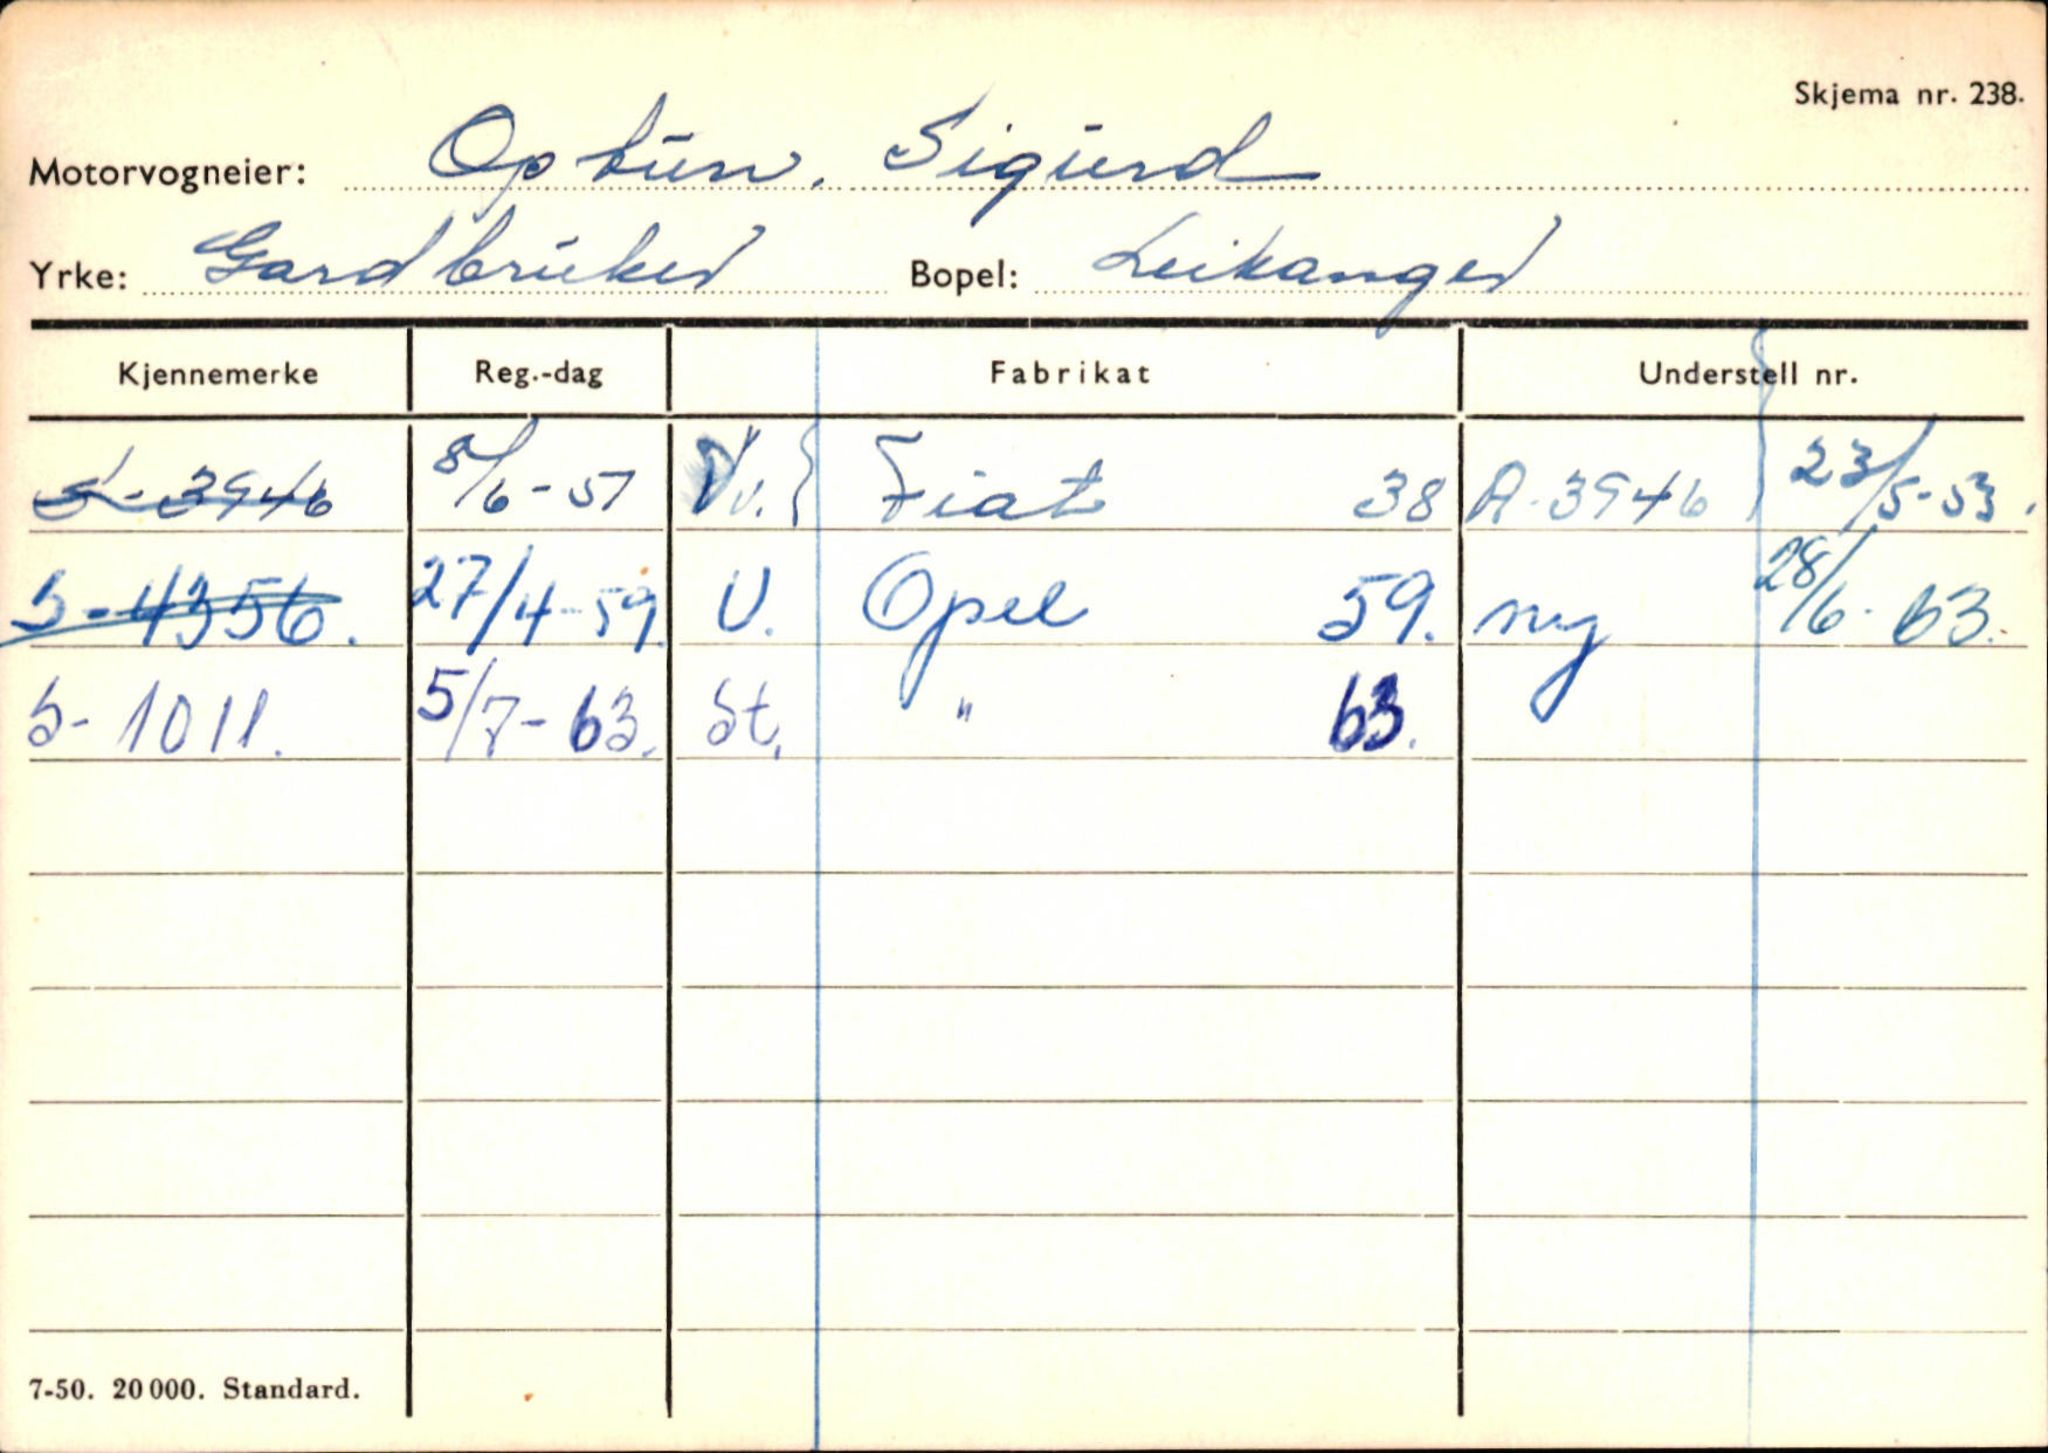 Skjema nr. 238.
Motorvogneier: Optun, Sigurd
Yrke: Gardbruker Bopel: Leikanger
Kjennemerke Reg.-dag Fabrikat Understell nr.
S-3946 8/6-51 Vv. Fiat 38 A-3946 23/5-53.
S-4356. 27/4-59. V. Opel 59. ny 28/6-63.
S-1011. 5/7-63. St. " 63.
7-50. 20 000. Standard.